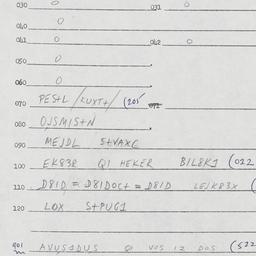 030 0 031 0
040 0
041 0 042 0
050 0
060 0
070 PES+L / / (205 072
080 OJSMIS+N
090 MEJDL S+VAXC
100 EK838 Q1 HEKER BIL8K1 (022
110 D81D = D81DOC+ = D81D LEJK83X (
120 LOX S+PUG1
901 AVUS1DUS 8 VOS 12 DOS (522